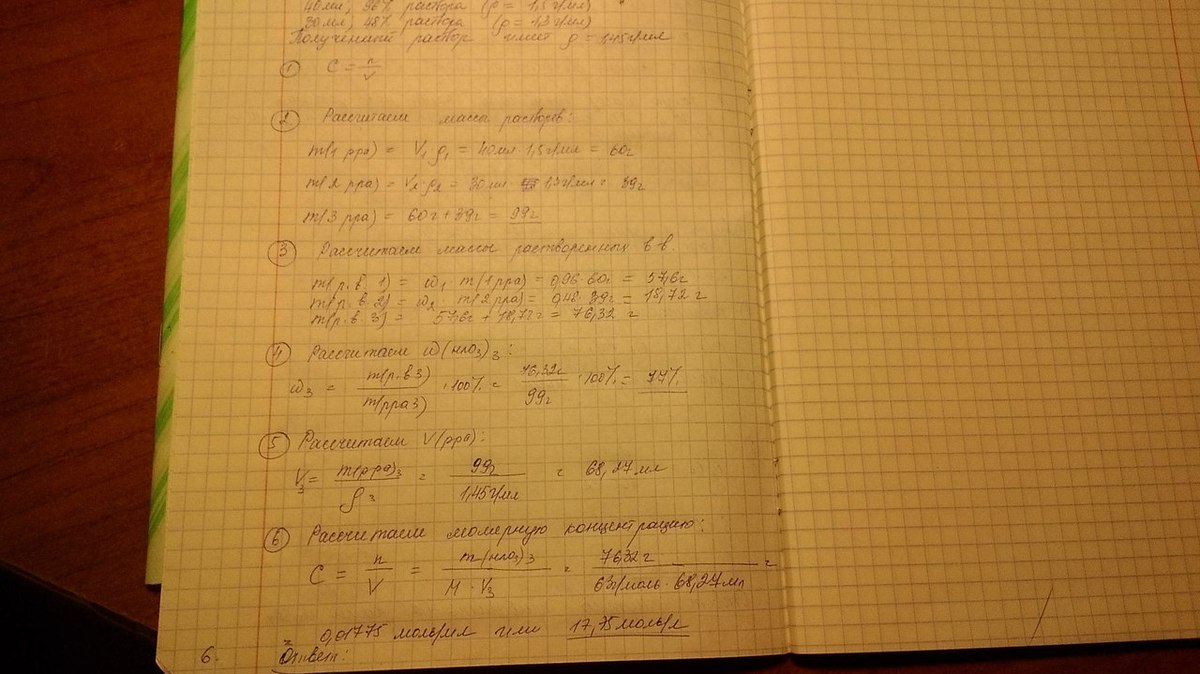 40мл, 96% раствора (ρ = 1,5 г/мл)
30мл, 48% раствора (ρ = 1,3 г/мл)
Полученный раствор имеет ρ = 1,45 г/мл
① C = n/V
② Рассчитаем массы растворов:
m(1 рра) = V₁ ρ₁ = 40мл 1,5г/мл = 60г
m(2 рра) = V₂·ρ₂ = 30мл 1,3г/мл = 39г
m(3 рра) = 60г + 39г = 99г
③ Рассчитаем массы растворенных в-в.
m(р.в. 1) = ω₁ · m(1рра) = 0,96·60г = 57,6г
m(р.в. 2) = ω₂ · m(2рра) = 0,48·39г = 18,72 г
m(р.в 3) = 57,6г + 18,72г = 76,32 г
④ Рассчитаем ω(HNO₃)₃:
ω₃ = m(р.в3)/m(рра3) · 100% = 76,32г/99г · 100% = 77%
⑤ Рассчитаем V(рра):
V₃ = m(рра)₃/ρ₃ = 99г/1,45г/мл = 68,27мл
⑥ Рассчитаем молярную концентрацию:
C = n/V = m(HNO₃)₃/M · V₃ = 76,32г/63г/моль · 68,27мл =
= 0,01775 моль/мл или 17,75моль/л
6. Ответ: